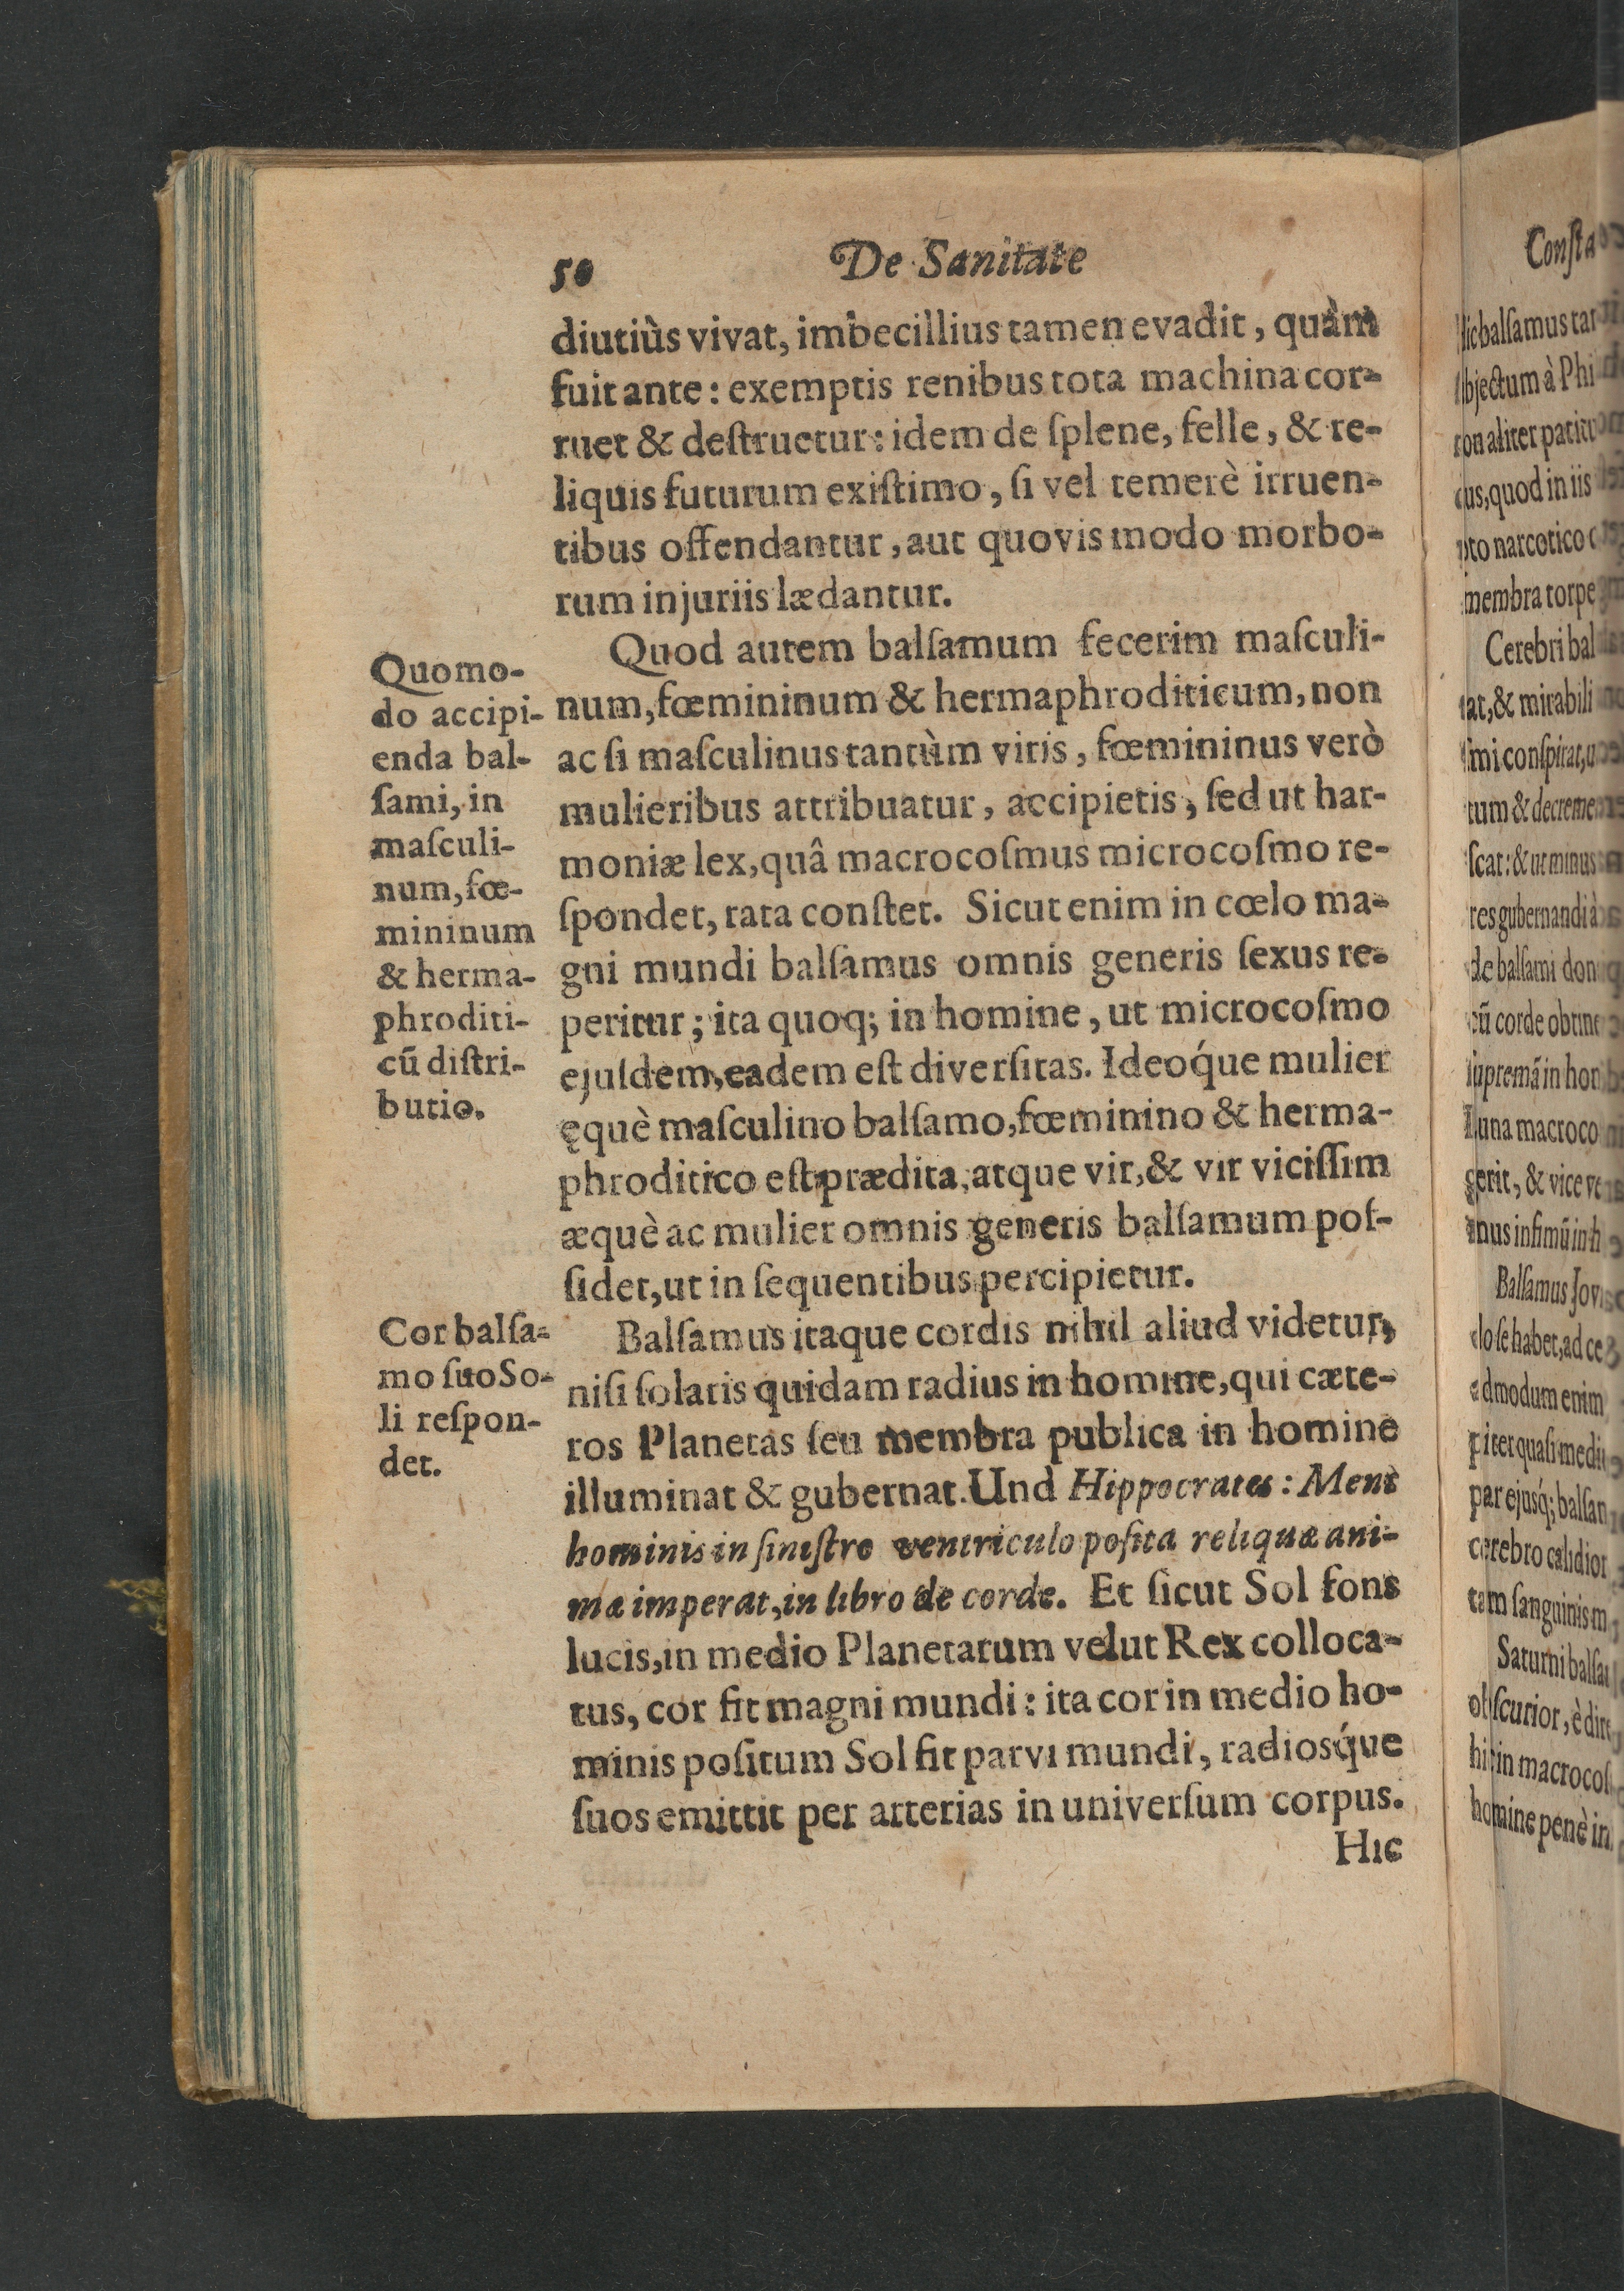 50 De Sanitate
diutiùs vivat, imbecillius tamen evadit, quàm
fuit ante: exemptis renibus tota machina cor-
ruet & deſtruetur: idem de ſplene, felle, & re-
liquis futurum exiſtimo, ſi vel temerè irruen-
tibus offendantur, aut quovis modo morbo-
rum injuriis lædantur.
Quomo-
do accipi-
enda bal-
ſami, in
maſculi-
num, fœ-
mininum
& herma-
phroditi-
cū diſtri-
butio.
Quod autem balſamum fecerim maſculi-
num, fœmininum & hermaphroditicum, non
ac ſi maſculinus tantùm viris, fœmininus verò
mulieribus attribuatur, accipietis, ſed ut har-
moniæ lex, quâ macrocoſmus microcoſmo re-
ſpondet, rata conſtet. Sicut enim in cœlo ma-
gni mundi balſamus omnis generis ſexus re-
peritur; ita quoq; in homine, ut microcoſmo
ejuſdem, eadem eſt diverſitas. Ideoq́ue mulier
ęquè maſculino balſamo, fœminino & herma-
phroditico eſt prædita, atque vir, & vir viciſſim
æquè ac mulier omnis generis balſamum poſ-
ſidet, ut in ſequentibus percipietur.
Cor balſa-
mo ſuo So-
li reſpon-
det.
Balſamus itaque cordis nihil aliud videtur,
niſi ſolaris quidam radius in homine, qui cæte-
ros Planetas ſeu membra publica in homine
illuminat & gubernat. Und Hippocrates: Mens
hominis in ſiniſtro ventriculo poſita reliquæ ani-
mæ imperat, in libro de corde. Et ſicut Sol fons
lucis, in medio Planetarum velut Rex colloca-
tus, cor fit magni mundi: ita cor in medio ho-
minis poſitum Sol fit parvi mundi, radiosq́ue
ſuos emittit per arterias in univerſum corpus.
Hic